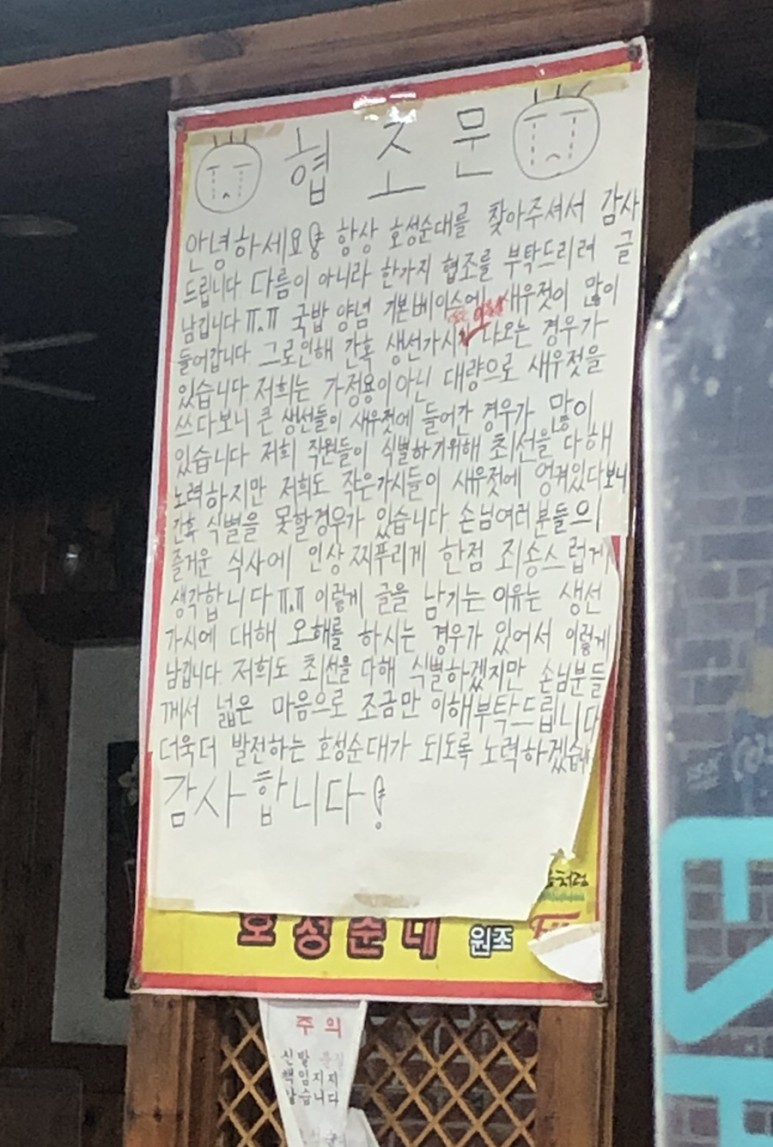 협조문
안녕하세요! 항상 호성순대를 찾아주셔서 감사
드립니다 다름이 아니라 한가지 협조를 부탁드리려 글
남깁니다 ㅠ.ㅠ 국밥 양념 기본베이스에 새우젓이 많이
들어갑니다 그로인해 간혹 생선가시가 나오는 경우가
있습니다 저희는 가정용이아닌 대량으로 새우젓을
쓰다보니 큰 생선들이 새우젓에 들어간 경우가 많이
있습니다 저희 직원들이 식별하기위해 최선을 다해
노력하지만 저희도 작은가시들이 새우젓에 엉켜있다보니
간혹 식별을 못할경우가 있습니다 손님여러분들의
즐거운 식사에 인상 찌푸리게 한점 죄송스럽게
생각합니다 ㅠ.ㅠ 이렇게 글을 남기는 이유는 생선
가시에 대해 오해를 하시는 경우가 있어서 이렇게
남깁니다 저희도 최선을 다해 식별하겠지만 손님분들
께서 넓은 마음으로 조금만 이해부탁드립니다
더욱더 발전하는 호성순대가 되도록 노력하겠습니
감사합니다!
처럼
호성순대 원조
주의
신발
책임지지
않습니다